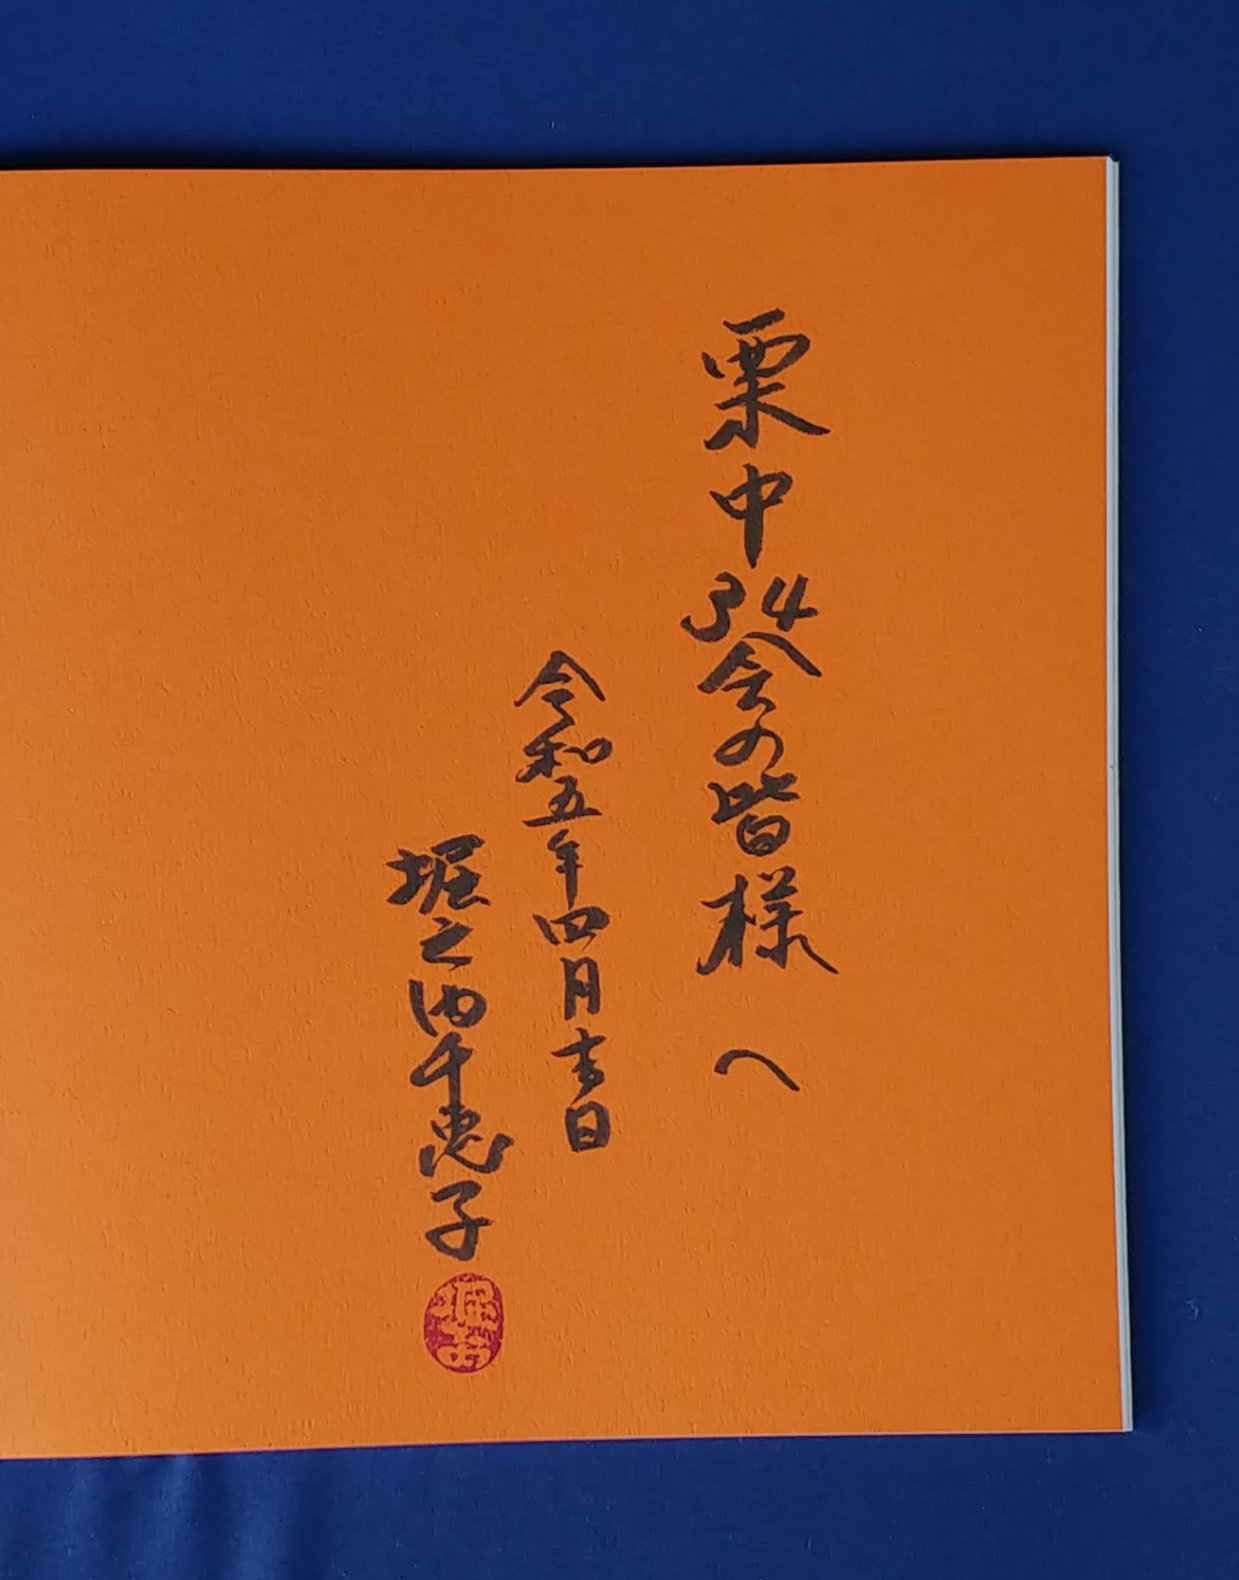 栗中34会の皆様へ
令和五年四月吉日
堀之内千恵子